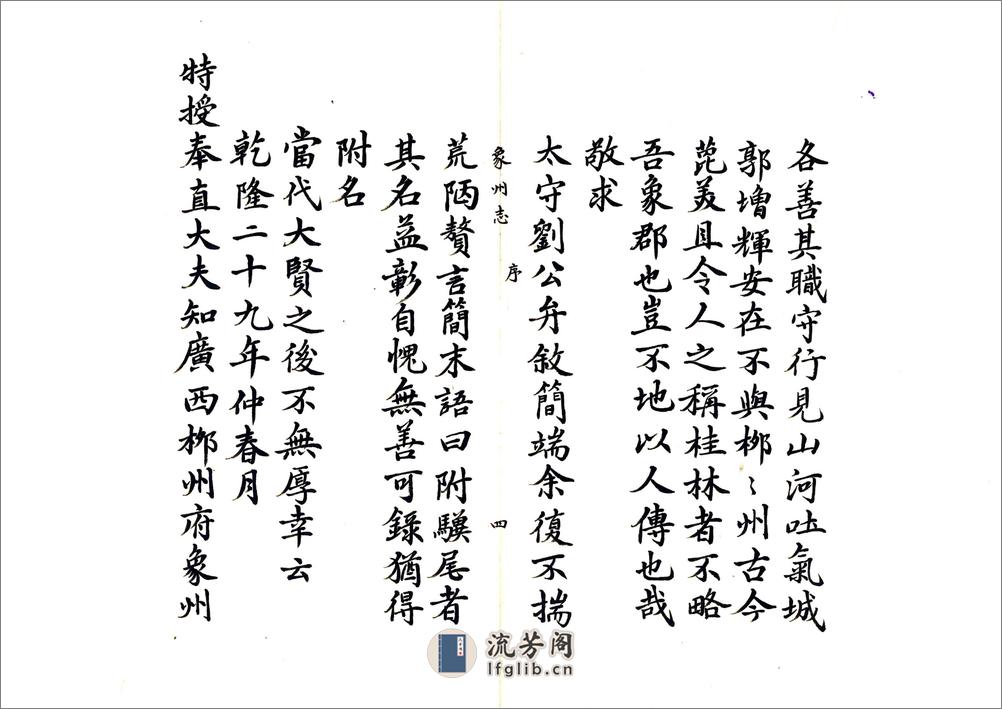 各善其職守行見山河吐氣城
郭增輝安在不與柳〻州古今
毘美且令人之稱桂林者不略
吾象郡也豈不地以人傳也哉
敬求
太守劉公弁敘簡端余復不揣
象州志 序 四
荒陋贅言簡末語曰附驥尾者
其名益彰自愧無善可錄猶得
附名
當代大賢之後不無厚幸云
乾隆二十九年仲春月
特授奉直大夫知廣西柳州府象州
流芳阁
lfglib.cn